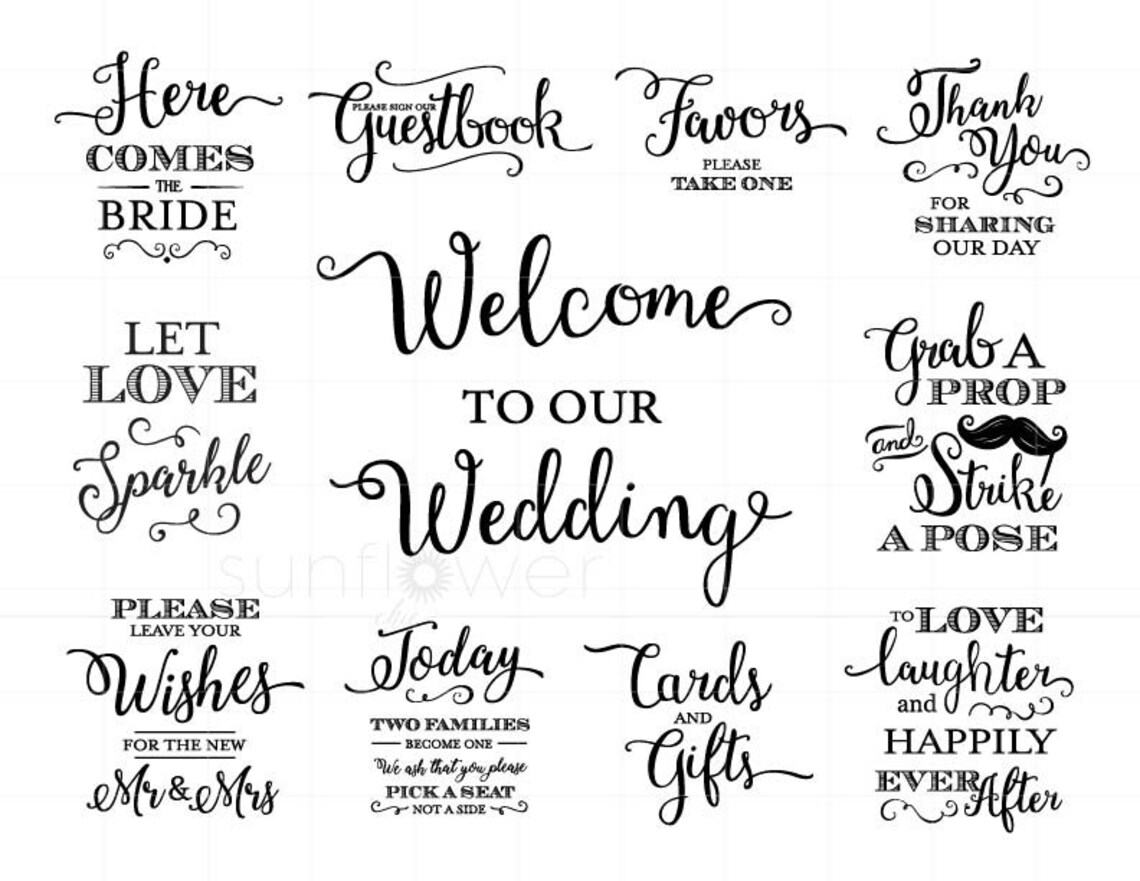 Here
COMES
THE
BRIDE
PLEASE SIGN OUR
Guestbook
Favors
PLEASE
TAKE ONE
Thank
You
FOR
SHARING
OUR DAY
Welcome
TO OUR
Wedding
LET
LOVE
Sparkle
Grab A
PROP
and
Strike
A POSE
sunflower
chic
PLEASE
LEAVE YOUR
Wishes
FOR THE NEW
Mr & Mrs
Today
TWO FAMILIES
BECOME ONE
We ask that you please
PICK A SEAT
NOT A SIDE
Cards
AND
Gifts
TO LOVE
laughter
and
HAPPILY
EVER After